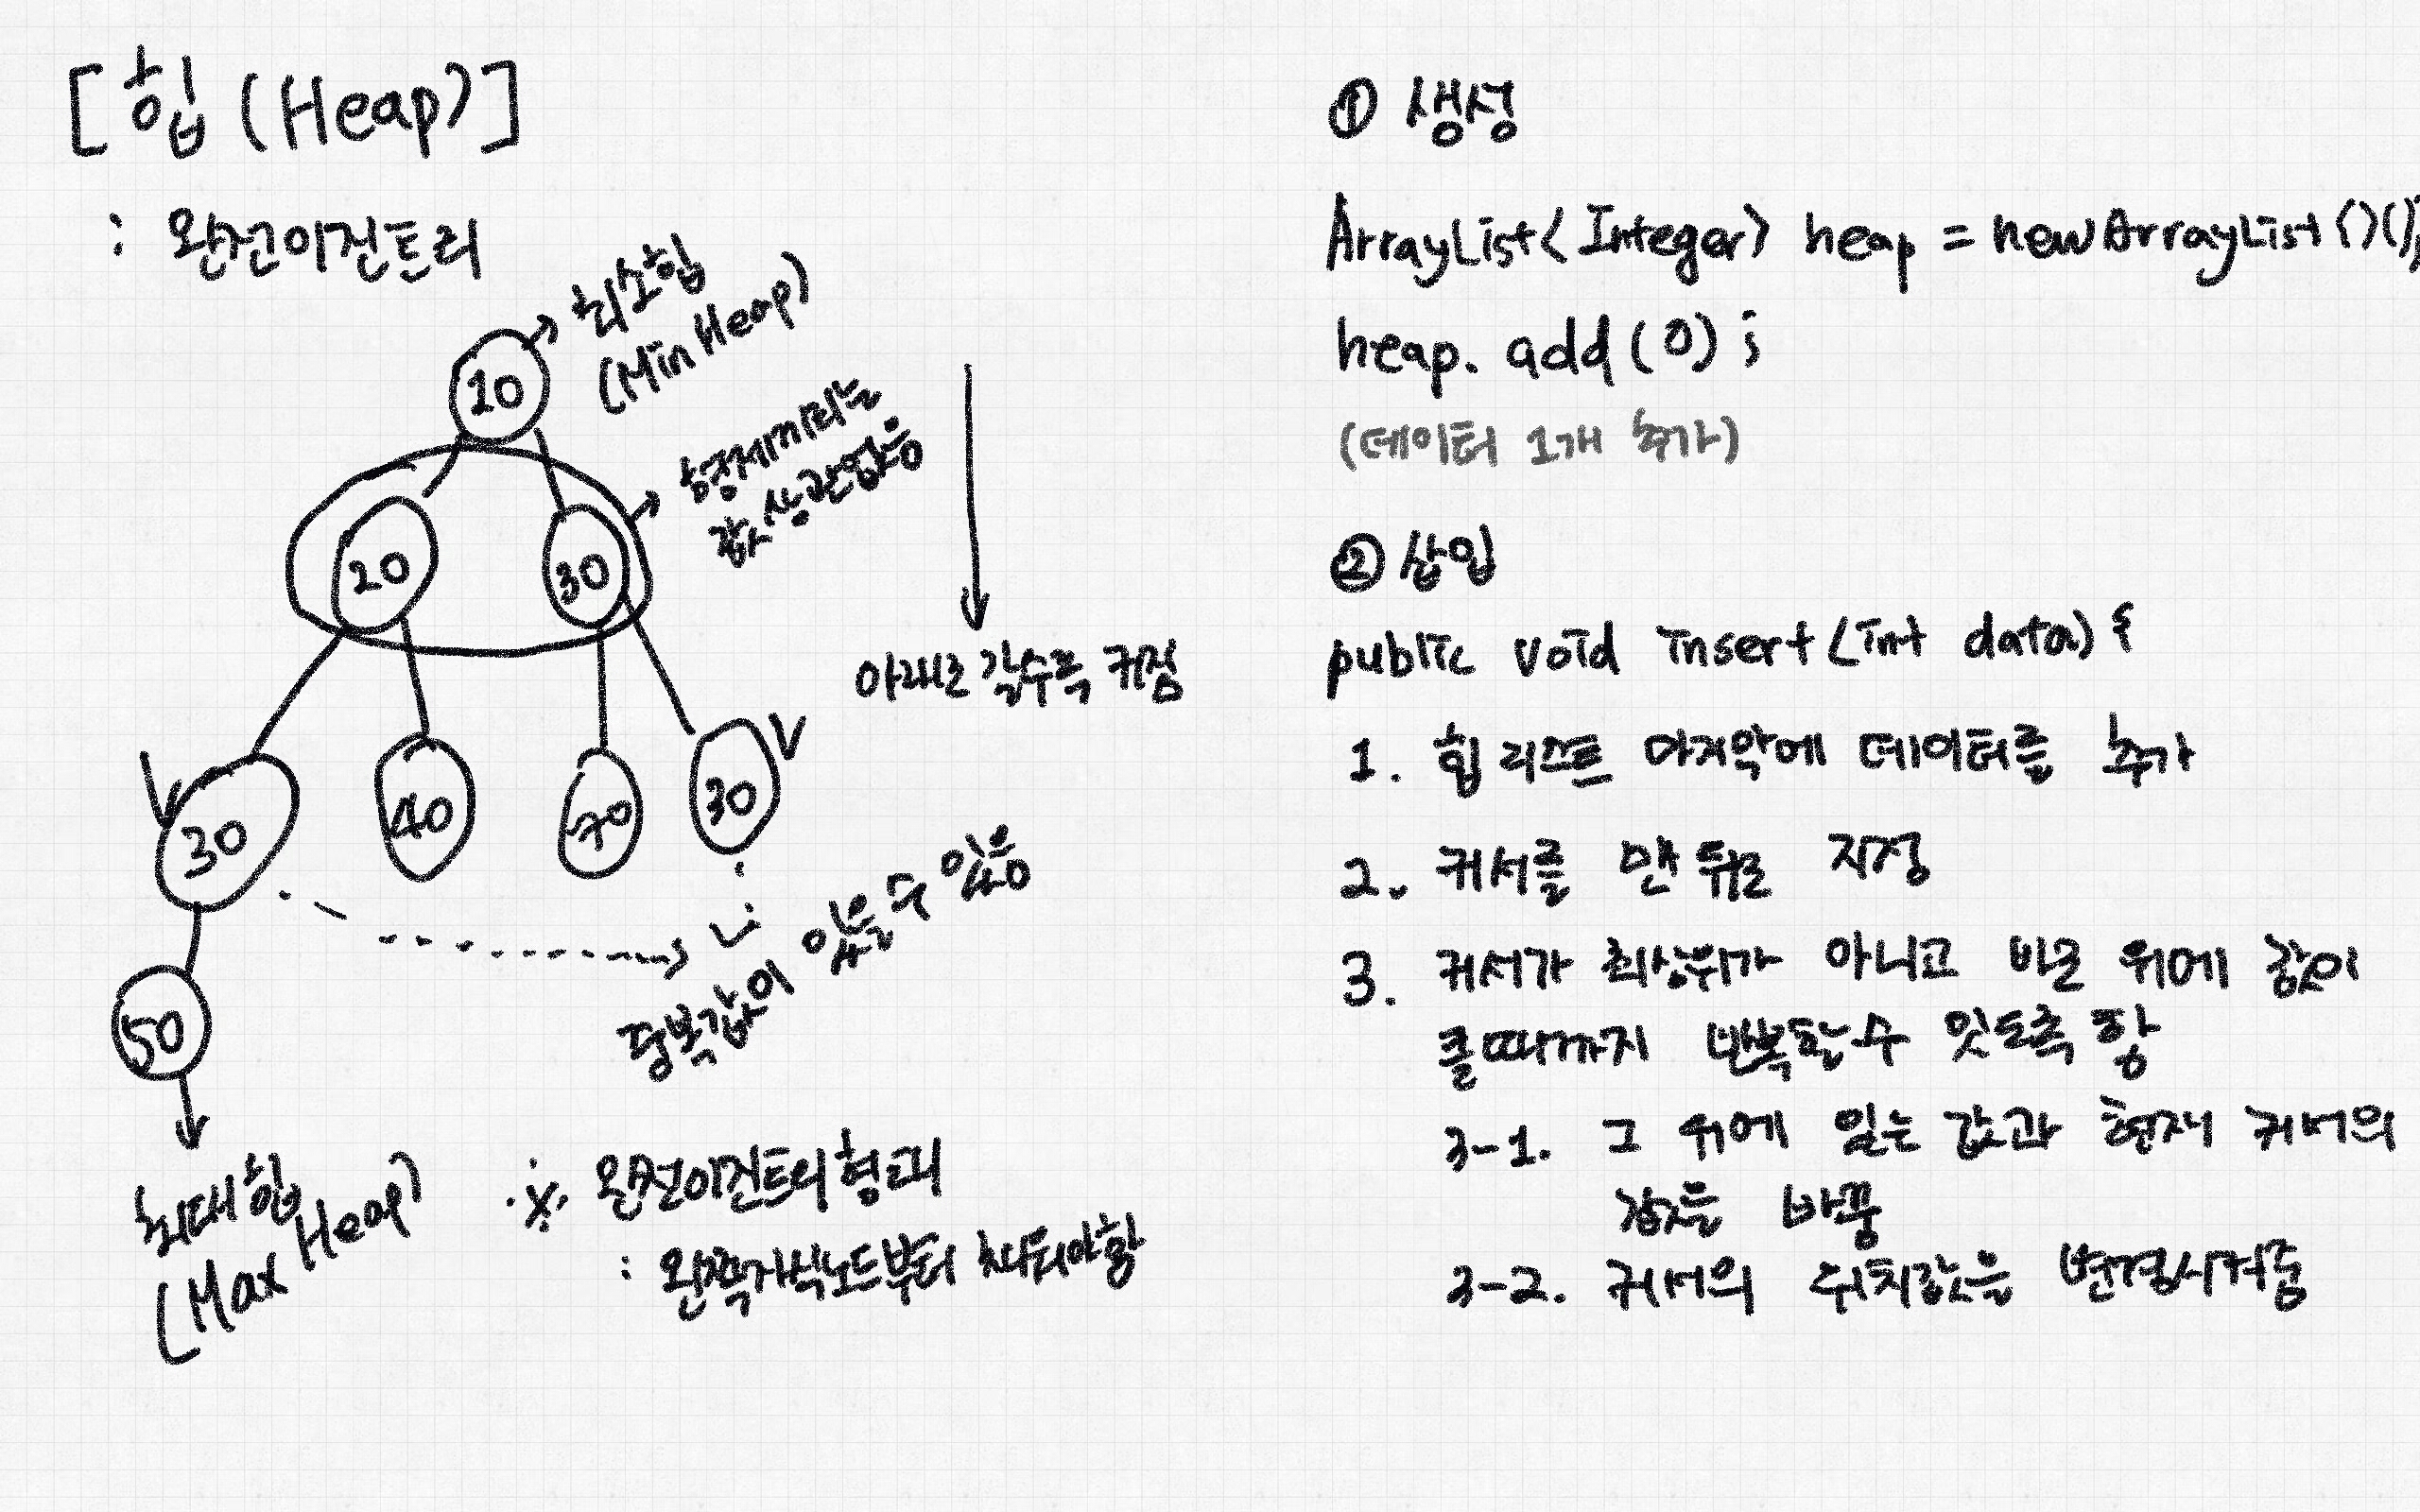 [힙 (Heap)]
: 완전이진트리
최소힙
(Min Heap)
10
형제끼리는
값 상관없음
20
30
아래로 갈수록 커짐
30
40
70
30
중복값이 있을 수 있음
50
최대힙
(Max Heap)
※ 완전이진트리형태
: 왼쪽자식노드부터 채워져야함
① 생성
ArrayList<Integer> heap = newArrayList<>();
heap. add(0);
(데이터 1개 추가)
② 삽입
public void insert(int data){
1. 힙 리스트 마지막에 데이터를 추가
2. 커서를 맨 뒤로 지정
3. 커서가 최상위가 아니고 바로 위에 값이
클때까지 반복할수 잇도록 함
3-1. 그 위에 있는 값과 현재 커서의
값을 바꿈
3-2. 커서의 위치값을 변경시켜줌